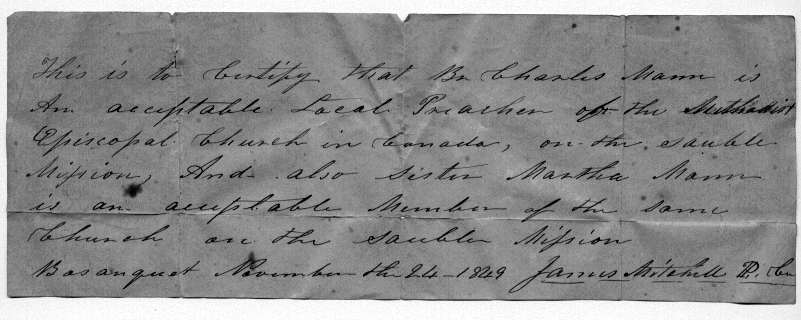 This is to Certify that Br Charles Mann is
An acceptable Local Preacher of the Methodist
Episcopal Church in Canada, on the sauble
Mission, And also sister Martha Mann
is an acceptable Member of the same
Church on the sauble Mission
Bosanquet November the 24 - 1849 James Mitchell